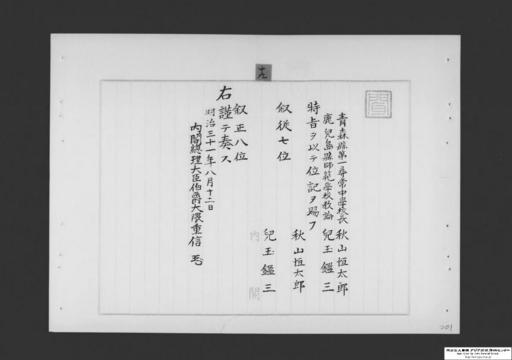 左
青森縣第一尋常中學校長 秋山恒太郎
鹿兒島縣師範學校教諭 兒玉鑑三
特旨ヲ以テ位記ヲ賜フ
叙從七位 秋山恒太郎
叙正八位 兒玉鑑三
右謹テ奏ス
明治三十一年八月十二日
内閣總理大臣伯爵大隈重信
内閣